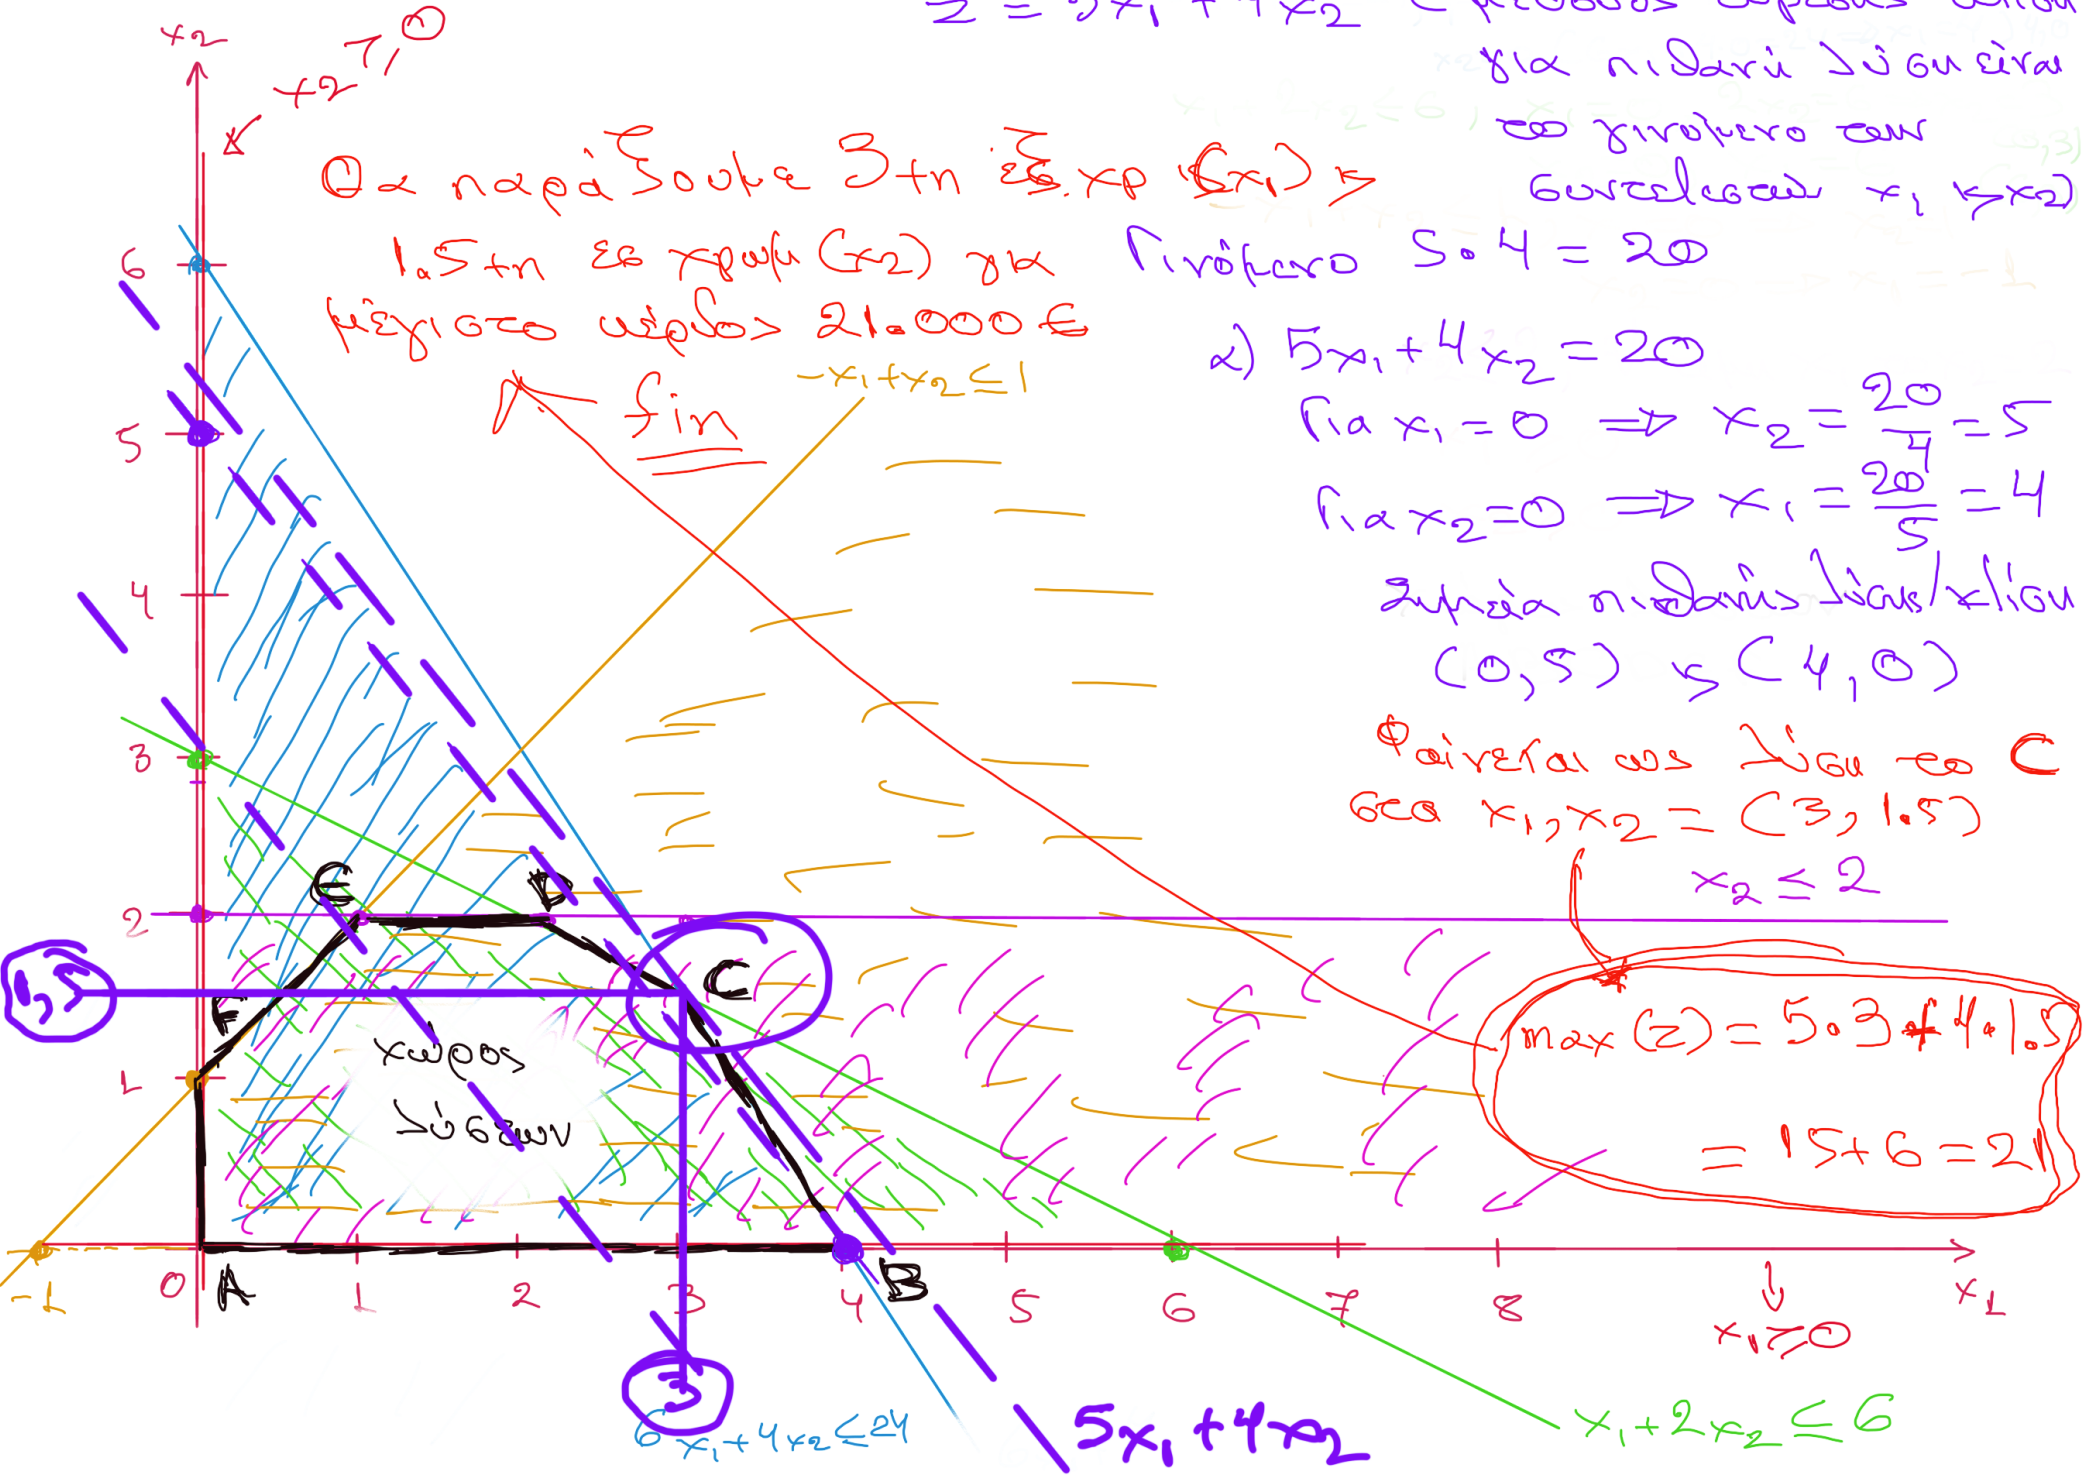 z = 5x₁ + 4x₂
για πιθανή λύση είναι
το γινόμενο των
συντελεστών x₁ κ x₂)
x₂ ≥ 0
x₂
Θα παράξουμε 3 tn εξ. χρ (x₁) κ
1.5 tn εσ χρωμ (x₂) για
μέγιστο κέρδος 21.000 €
fin
Γινόμενο 5·4 = 20
α) 5x₁ + 4x₂ = 20
Για x₁ = 0 ⇒ x₂ = 20/4 = 5
Για x₂ = 0 ⇒ x₁ = 20/5 = 4
Σημεία πιθανής λύσης/κλίση
(0,5) κ (4,0)
Φαίνεται ως λύση το C
στα x₁, x₂ = (3, 1.5)
max(z) = 5·3 + 4·1.5
= 15 + 6 = 21
-x₁ + x₂ ≤ 1
x₂ ≤ 2
6
5
4
3
2
1,5
1
E
D
C
F
χώρος
λύσεων
A
B
-1
0
1
2
3
4
5
6
7
8
x₁
x₁ ≥ 0
3
6x₁ + 4x₂ ≤ 24
5x₁ + 4x₂
x₁ + 2x₂ ≤ 6